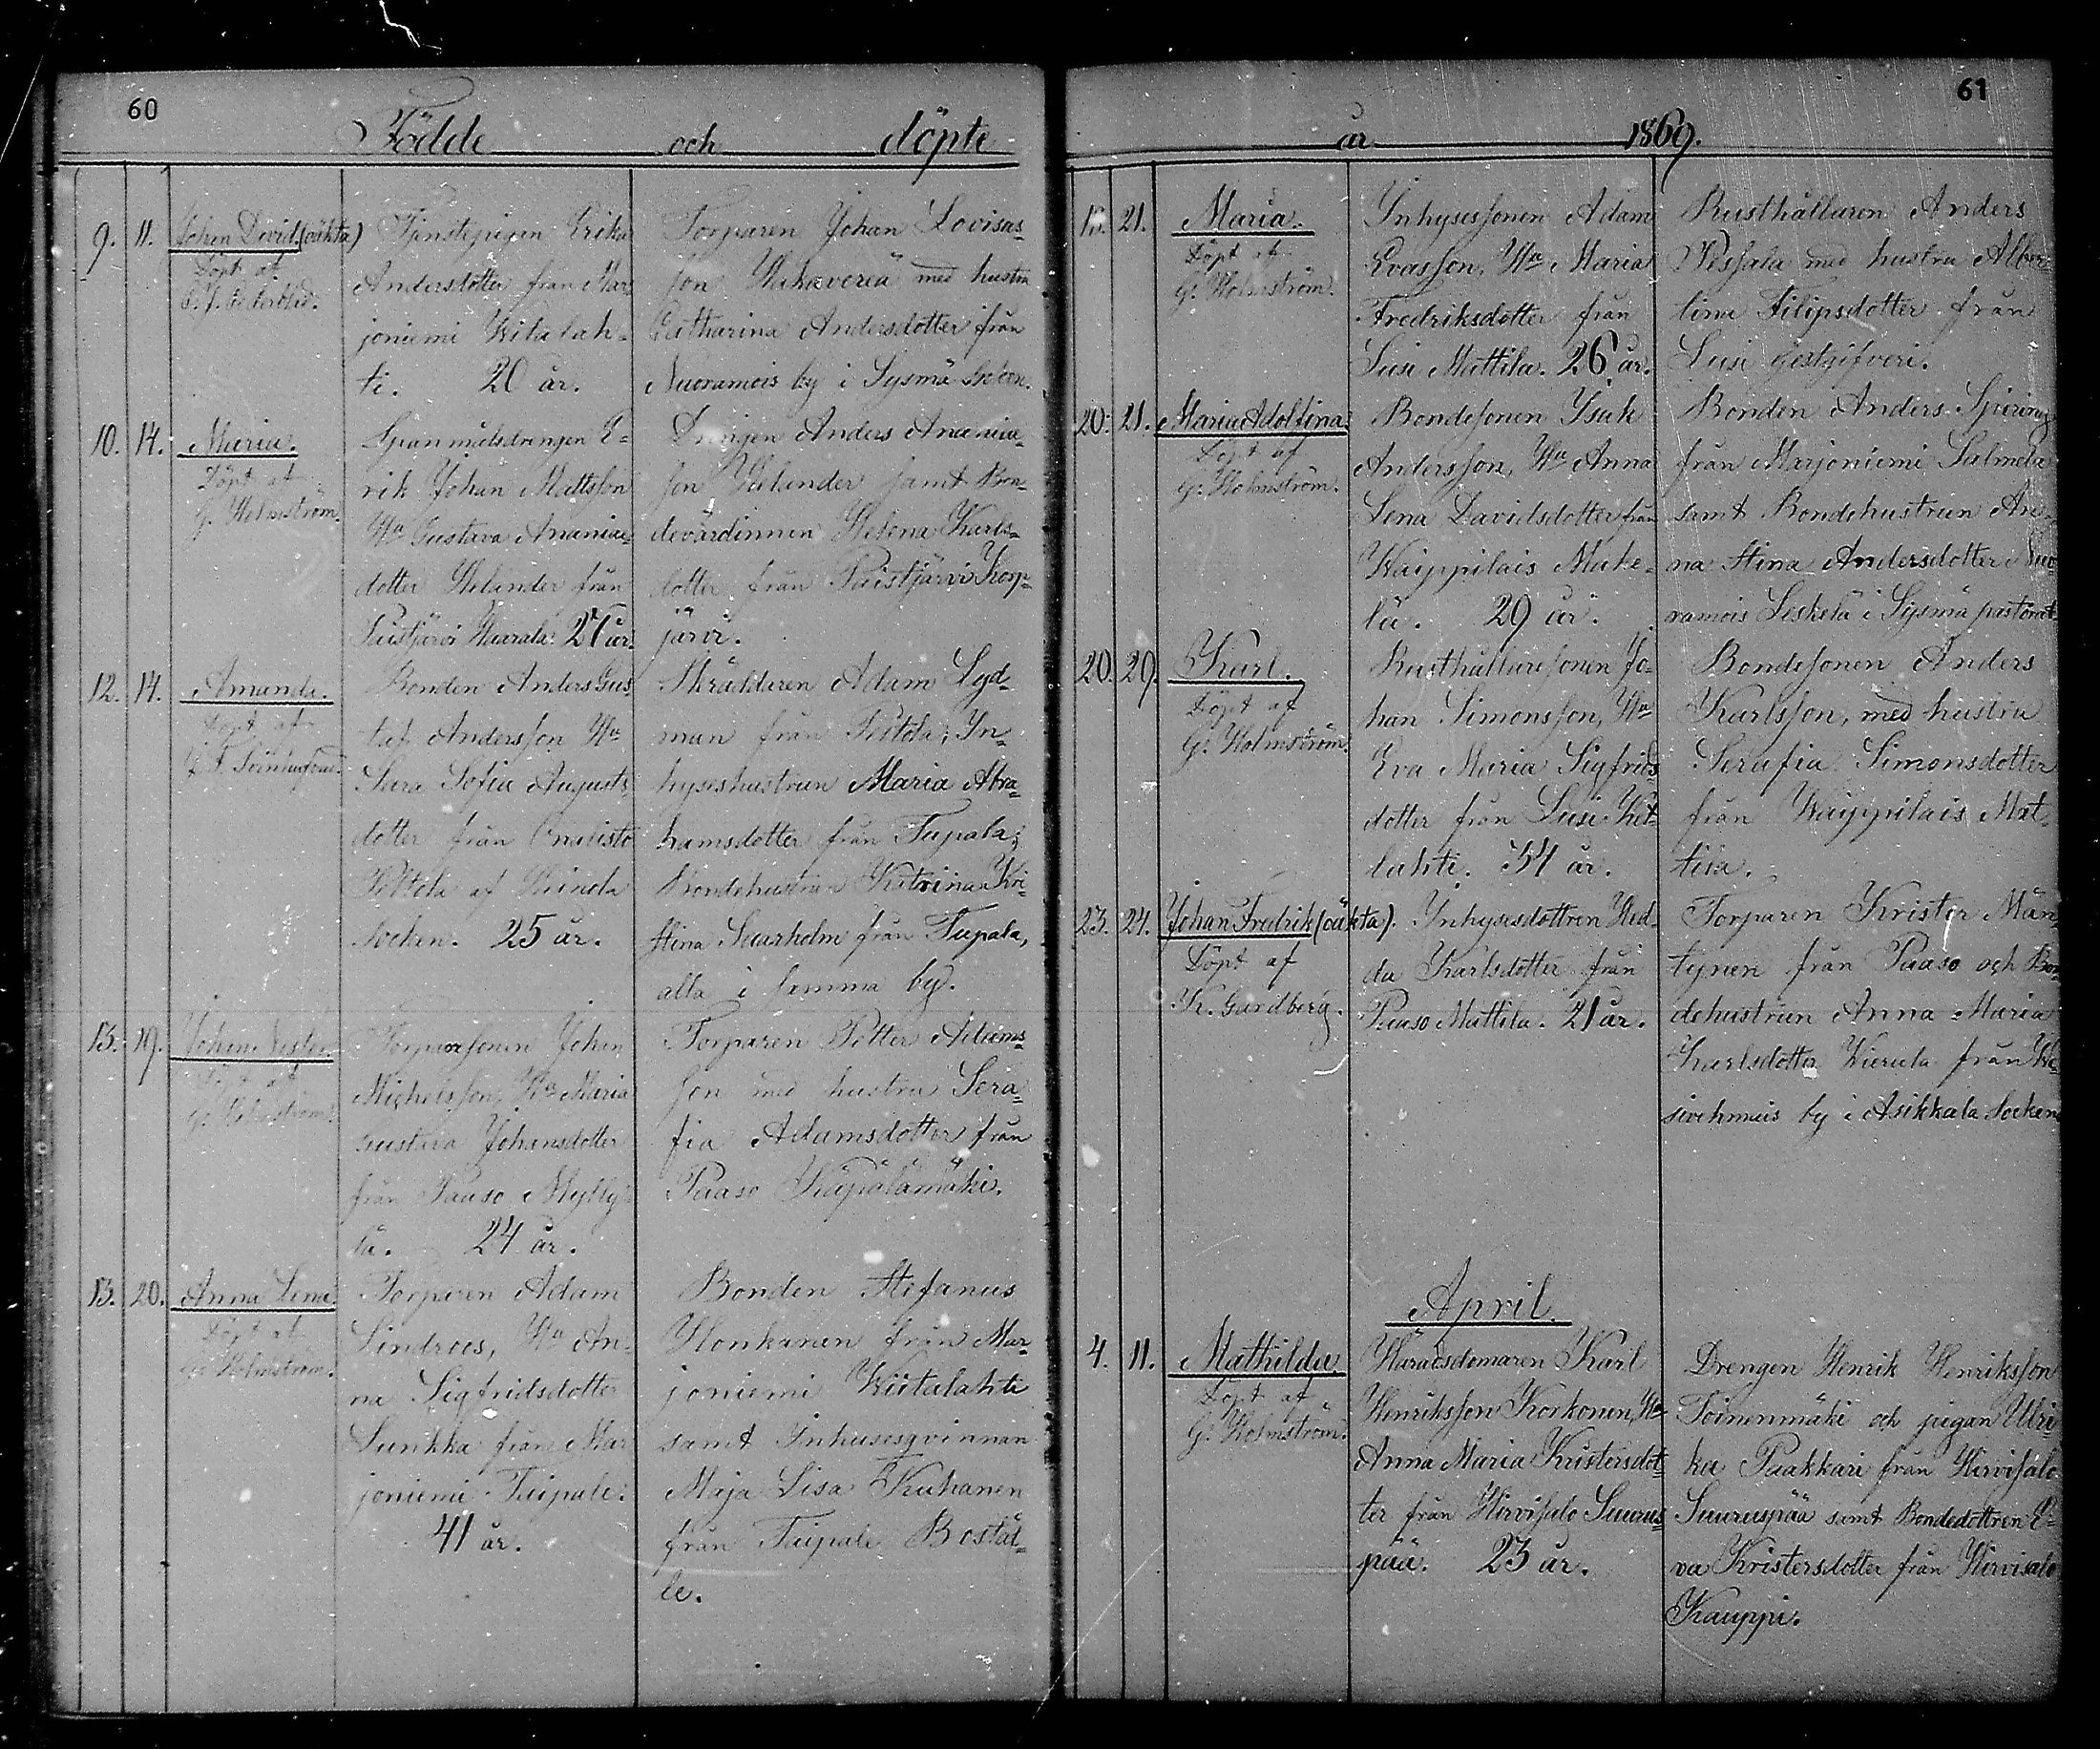 60
Födde och döpte
9. 11. Johan David (oäkta)
Döpt af
Tjenstepigan Erika
Andersdotter från Mar-
joniemi Witalah-
ti. 20 år.
Torparen Johan Lovisas-
son med hustru
Catharina Andersdotter från
Nuoramois by i Sysmä Socken.
10. 14. Maria.
Döpt af
G. Holmström.
Spanmålsdrengen E-
rik Johan Mattsson
Hu Gustava Ananiae-
dotter Helander från
Paistjärvi Waarala. 27 år.
Drengen Anders Ananiae-
son Helander samt Bon-
devärdinnan Helena Karls-
dotter från Paistjärvi Korp-
järvi.
12. 14. Amanda.
Döpt af
Bonden Anders Gus
taf Andersson Hu
Sara Sofia Augusts-
dotter från
af
Socken. 25 år.
Skräddaren Adam Lyd-
man från In-
hyseshustrun Maria Abra-
hamsdotter från Tupala;
Bondehustrun Katrina Kri-
stina från Tupala,
alla i samma by.
13. 19. Johan Nestor.
Döpt af
G. Holmström.
Torparesonen Johan
Michelsson, Hu Maria
Gustava Johansdotter
från Paaso Mylly-
lä. 24 år.
Torparen Petter Adams-
son med hustru Sera-
fia Adamsdotter från
Paaso Käpälämäki.
13. 20. Anna Lena.
Döpt af
G. Holmström.
Torparen Adam
Lindroos, Hu An-
na Sigfridsdotter
Sunkka från Mar
joniemi Taipale.
41 år.
Bonden Stefanus
Honkanen från Mar-
joniemi Wiitalahti
samt Inhysesqvinnan
Maja Lisa Kuhanen
från Taipale Boställ-
le.
61
år 1869.
15. 21. Maria.
Döpt af
G. Holmström.
Inhysessonen Adam
Evasson, Hu Maria
Fredriksdotter från
Lusi Mattila. 26 år.
Rusthållaren Anders
Pessala med hustru Alber-
tina Filipsdotter från
Lusi gestgifveri.
20. 21. Maria Adolfina.
Döpt af
G. Holmström.
Bondesonen Isak
Andersson, Hu Anna
Lena Davidsdotter från
Waippilais Make-
lä. 29 år.
Bonden Anders Spiring
från Marjoniemi Salmela
samt Bondehustrun An-
na Stina Andersdotter Nuo-
ramois Leskelä i Sysmä pastorat.
20. 29. Karl.
Döpt af
G. Holmström.
Rusthållaresonen Jo-
han Simonsson, Hu
Eva Maria Sigfrids-
dotter från Lusi Ket-
lahti. 34 år.
Bondesonen Anders
Karlsson, med hustru
Serafia Simonsdotter
från Waippilais Mat-
tila.
23. 24. Johan Fredrik (oäkta).
Döpt af
K. Gardberg.
Inhysesdottren Hed-
da Karlsdotter från
Paaso Mattila. 21 år.
Torparen Krister Män-
tynen från Paaso och Bon
dehustrun Anna Maria
Karlsdotter Wierula från We-
sivehmais by i Asikkala Socken
April.
4. 11. Mathilda
Döpt af
G. Holmström.
Häradsdomaren Karl
Henriksson Korkonen, Hu
Anna Maria Kristersdot-
ter från Hirvisalo Suurus-
pää. 23 år.
Drengen Henrik Henriksson
Toinenmäki och pigan Ulri-
ka Paakkari från Hirvisalo
Suuruspää samt Bondedottren E-
va Kristersdotter från Hirvisalo
Kauppi.